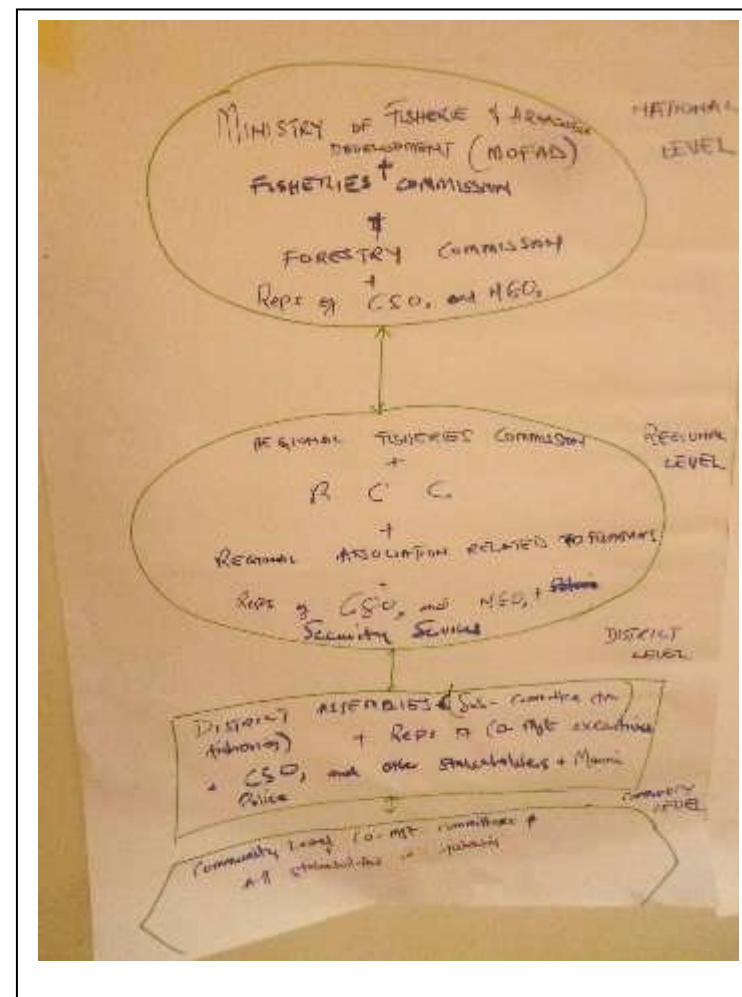 MINISTRY OF FISHERIE & AQUACULTURE
DEVELOPMENT (MOFAD)
NATIONAL
LEVEL
+
FISHERIES COMMISSION
+
FORESTRY COMMISSION
+
Reps of CSOs and NGOs
REGIONAL FISHERIES COMMISSION
REGIONAL
LEVEL
+
R C C.
+
REGIONAL ASSOCIATION RELATED TO
Reps of CSOs and NGOs +
Security Services
DISTRICT
LEVEL
DISTRICT ASSEMBLIES (Sub-committee on
fisheries) + Reps of Co-Mgt executives
+ CSOs and other stakeholders + Marine
Police
COMMUNITY
LEVEL
Community Level Co-mgt committees
All stakeholders in